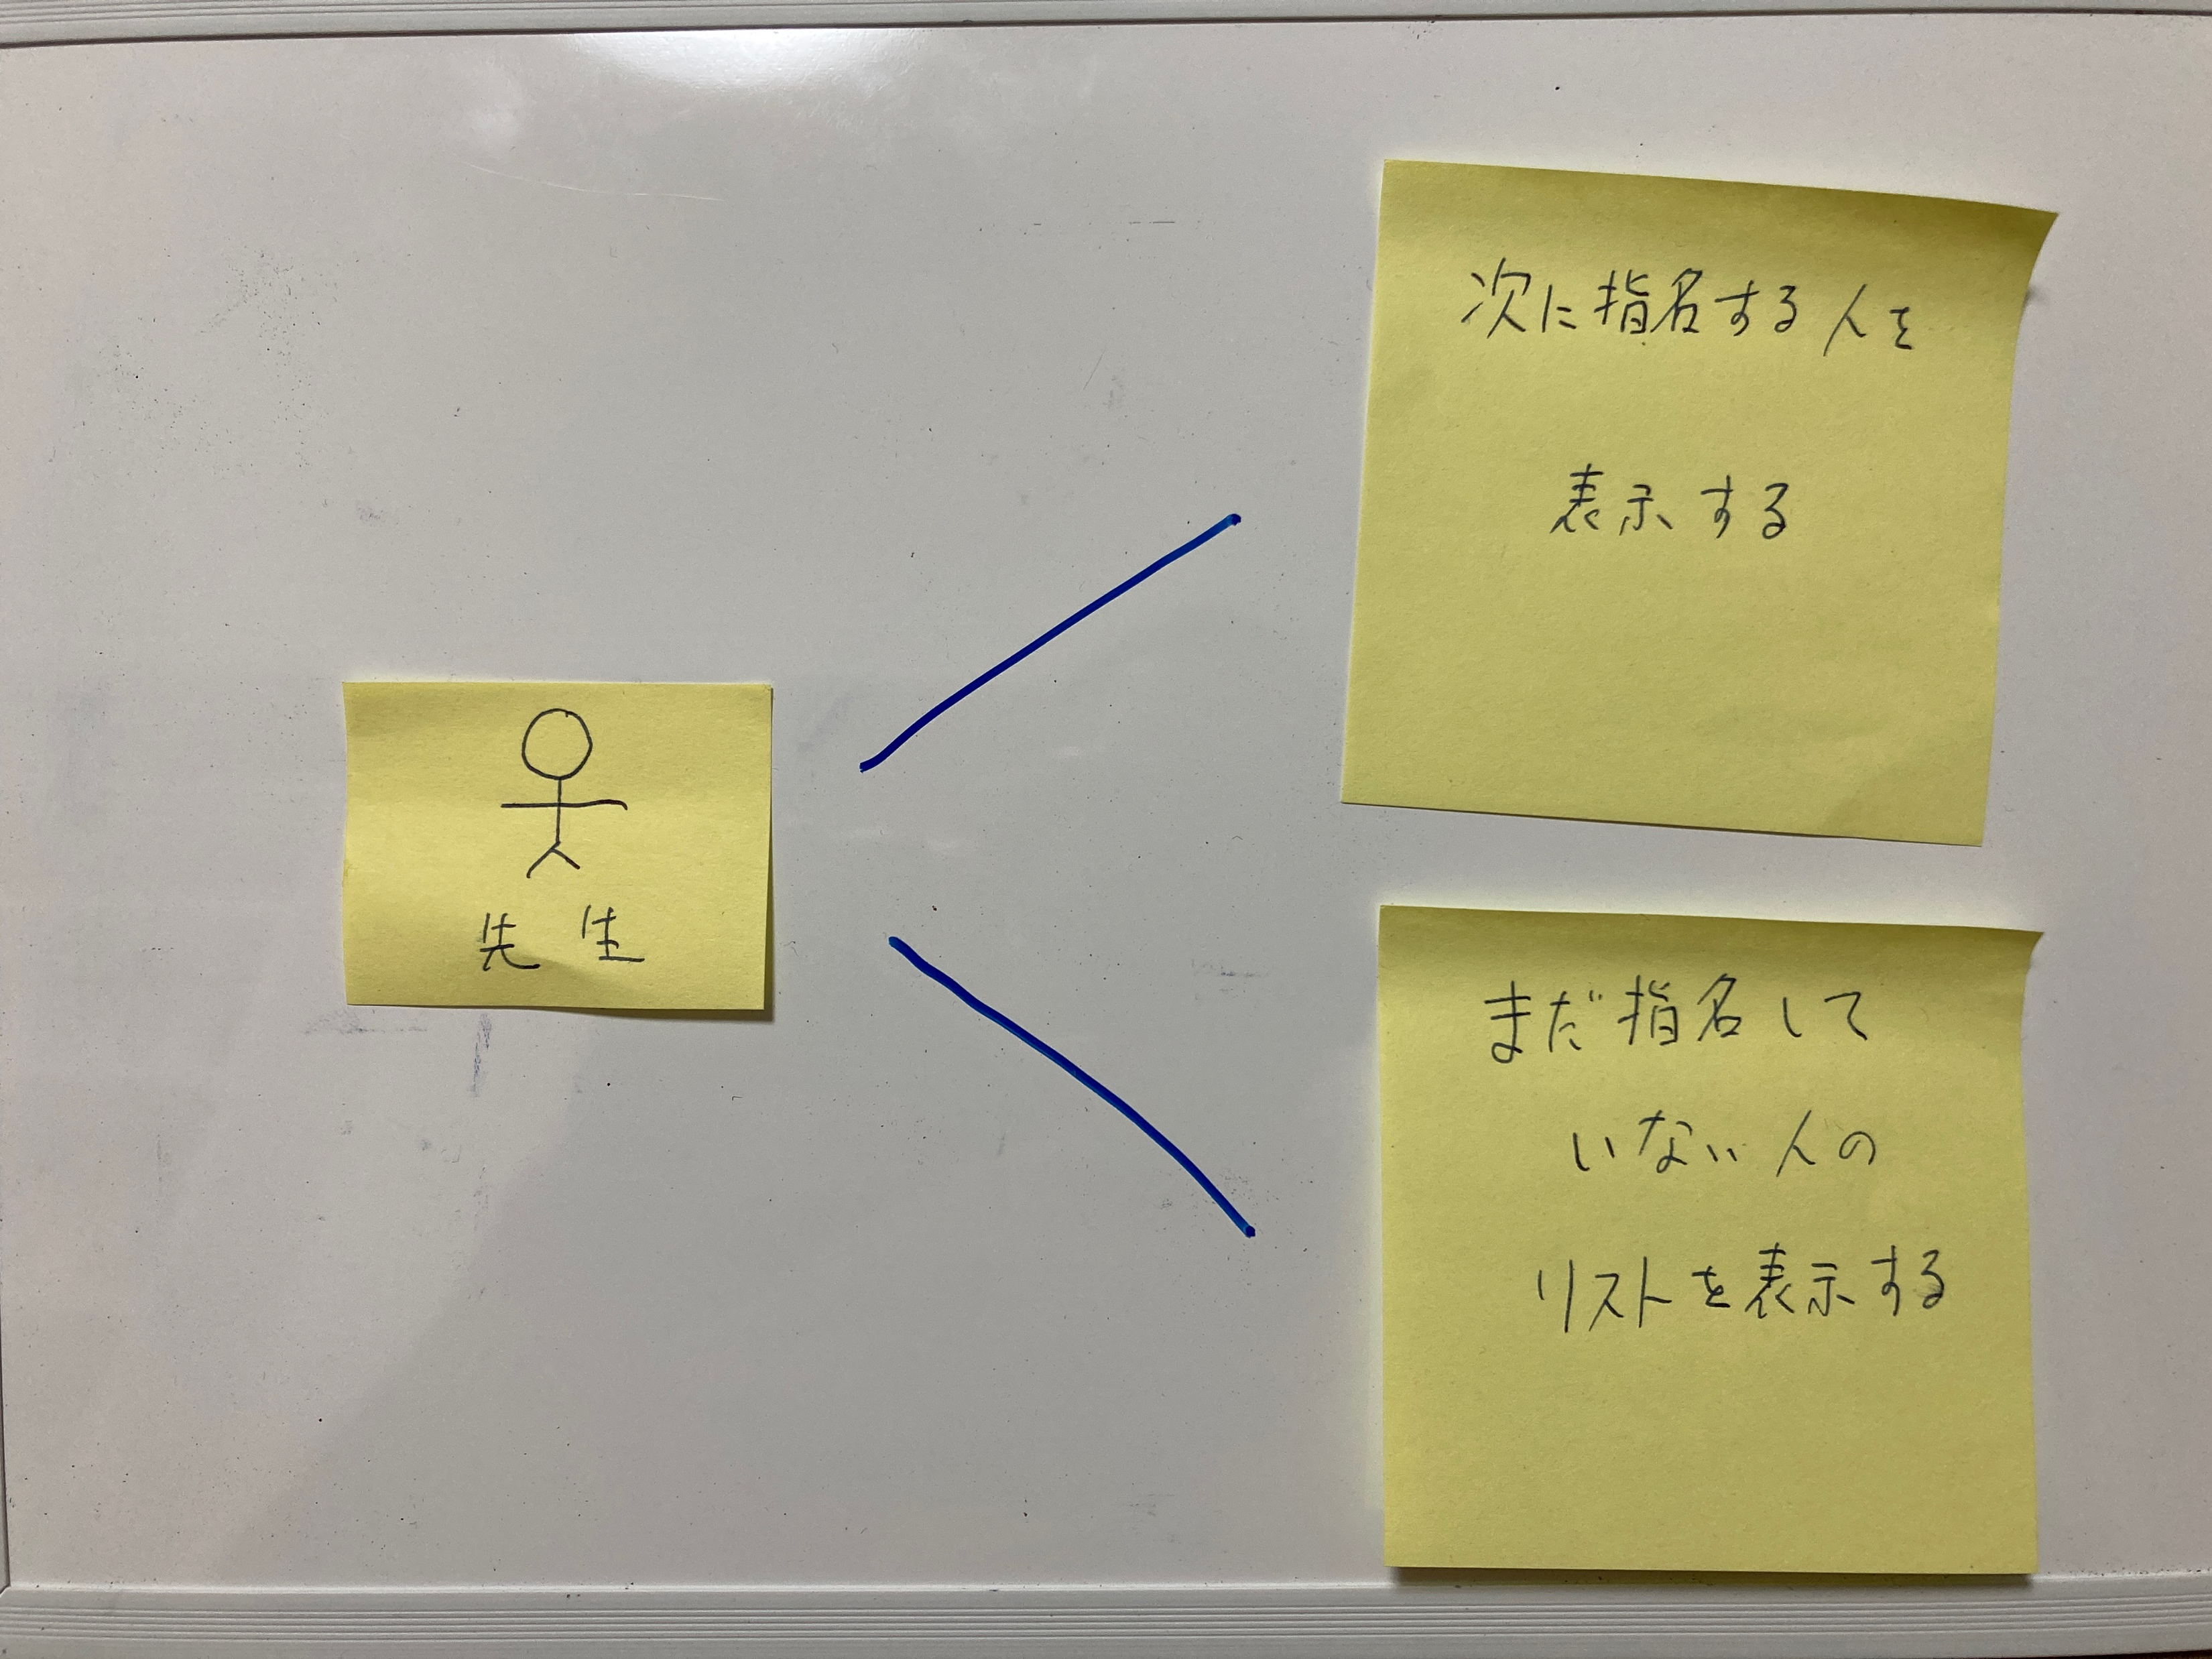 次に指名する人を
表示する
先生
まだ指名して
いない人の
リストを表示する